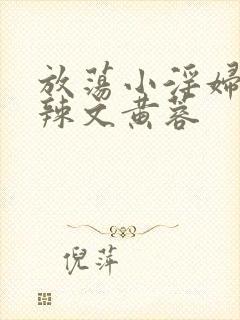 放荡小淫婦
辣文黄蓉
倪萍